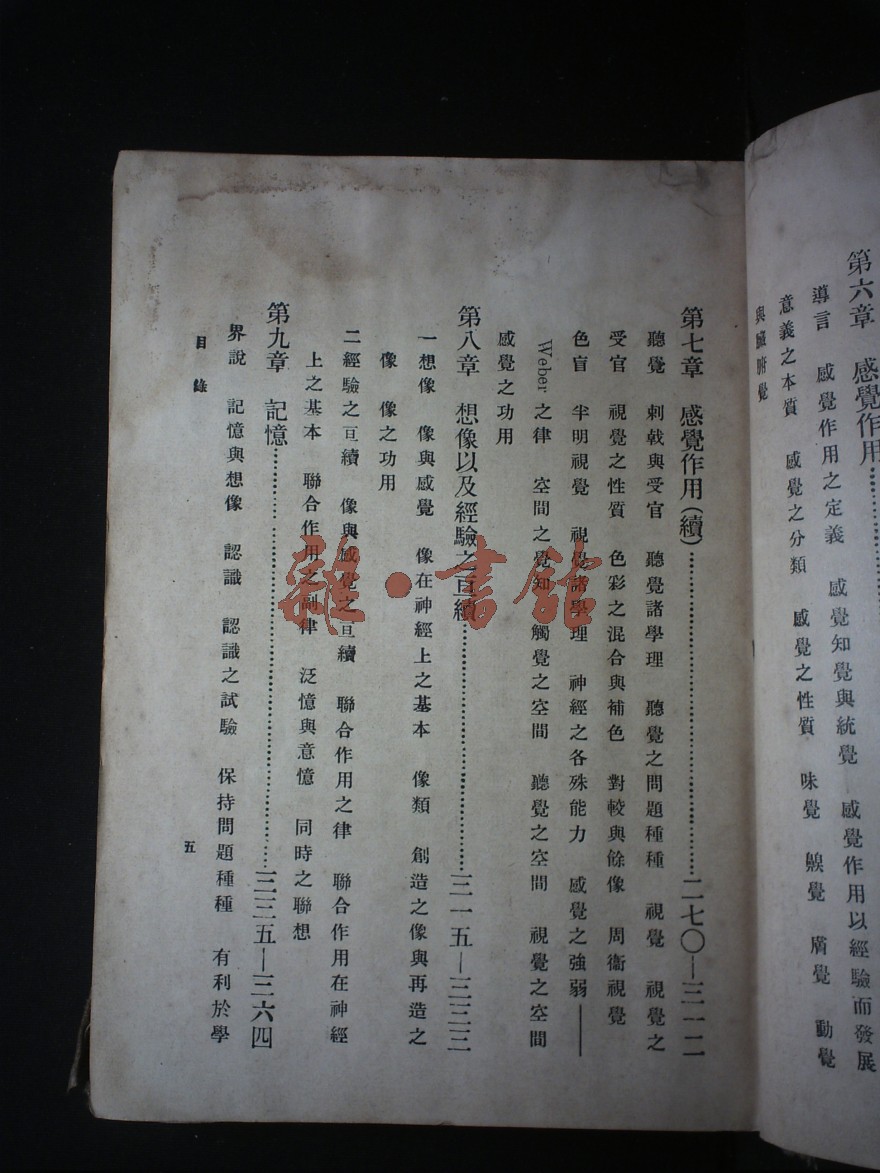 第六章　感覺作用…………
導言　感覺作用之定義　感覺知覺與統覺　感覺作用以經驗而發展
意義之本質　感覺之分類　感覺之性質　味覺　齅覺　膚覺　動覺
與臟腑覺
第七章　感覺作用(續)…………二七〇—三一二
聽覺　刺戟與受官　聽覺諸學理　聽覺之問題種種　視覺　視覺之
受官　視覺之性質　色彩之混合與補色　對較與餘像　周衞視覺
色盲　半明視覺　視覺諸學理　神經之各殊能力　感覺之強弱——
Weber之律　空間之覺知　觸覺之空間　聽覺之空間　視覺之空間
感覺之功用
第八章　想像以及經驗之亘續…………三一五—三三三
一想像　像與感覺　像在神經上之基本　像類　創造之像與再造之
像　像之功用
二經驗之亘續　像與感覺之亘續　聯合作用之律　聯合作用在神經
上之基本　聯合作用之副律　泛憶與意憶　同時之聯想
第九章　記憶…………三三五—三六四
界說　記憶與想像　認識　認識之試驗　保持問題種種　有利於學
目錄
五
雜·書館